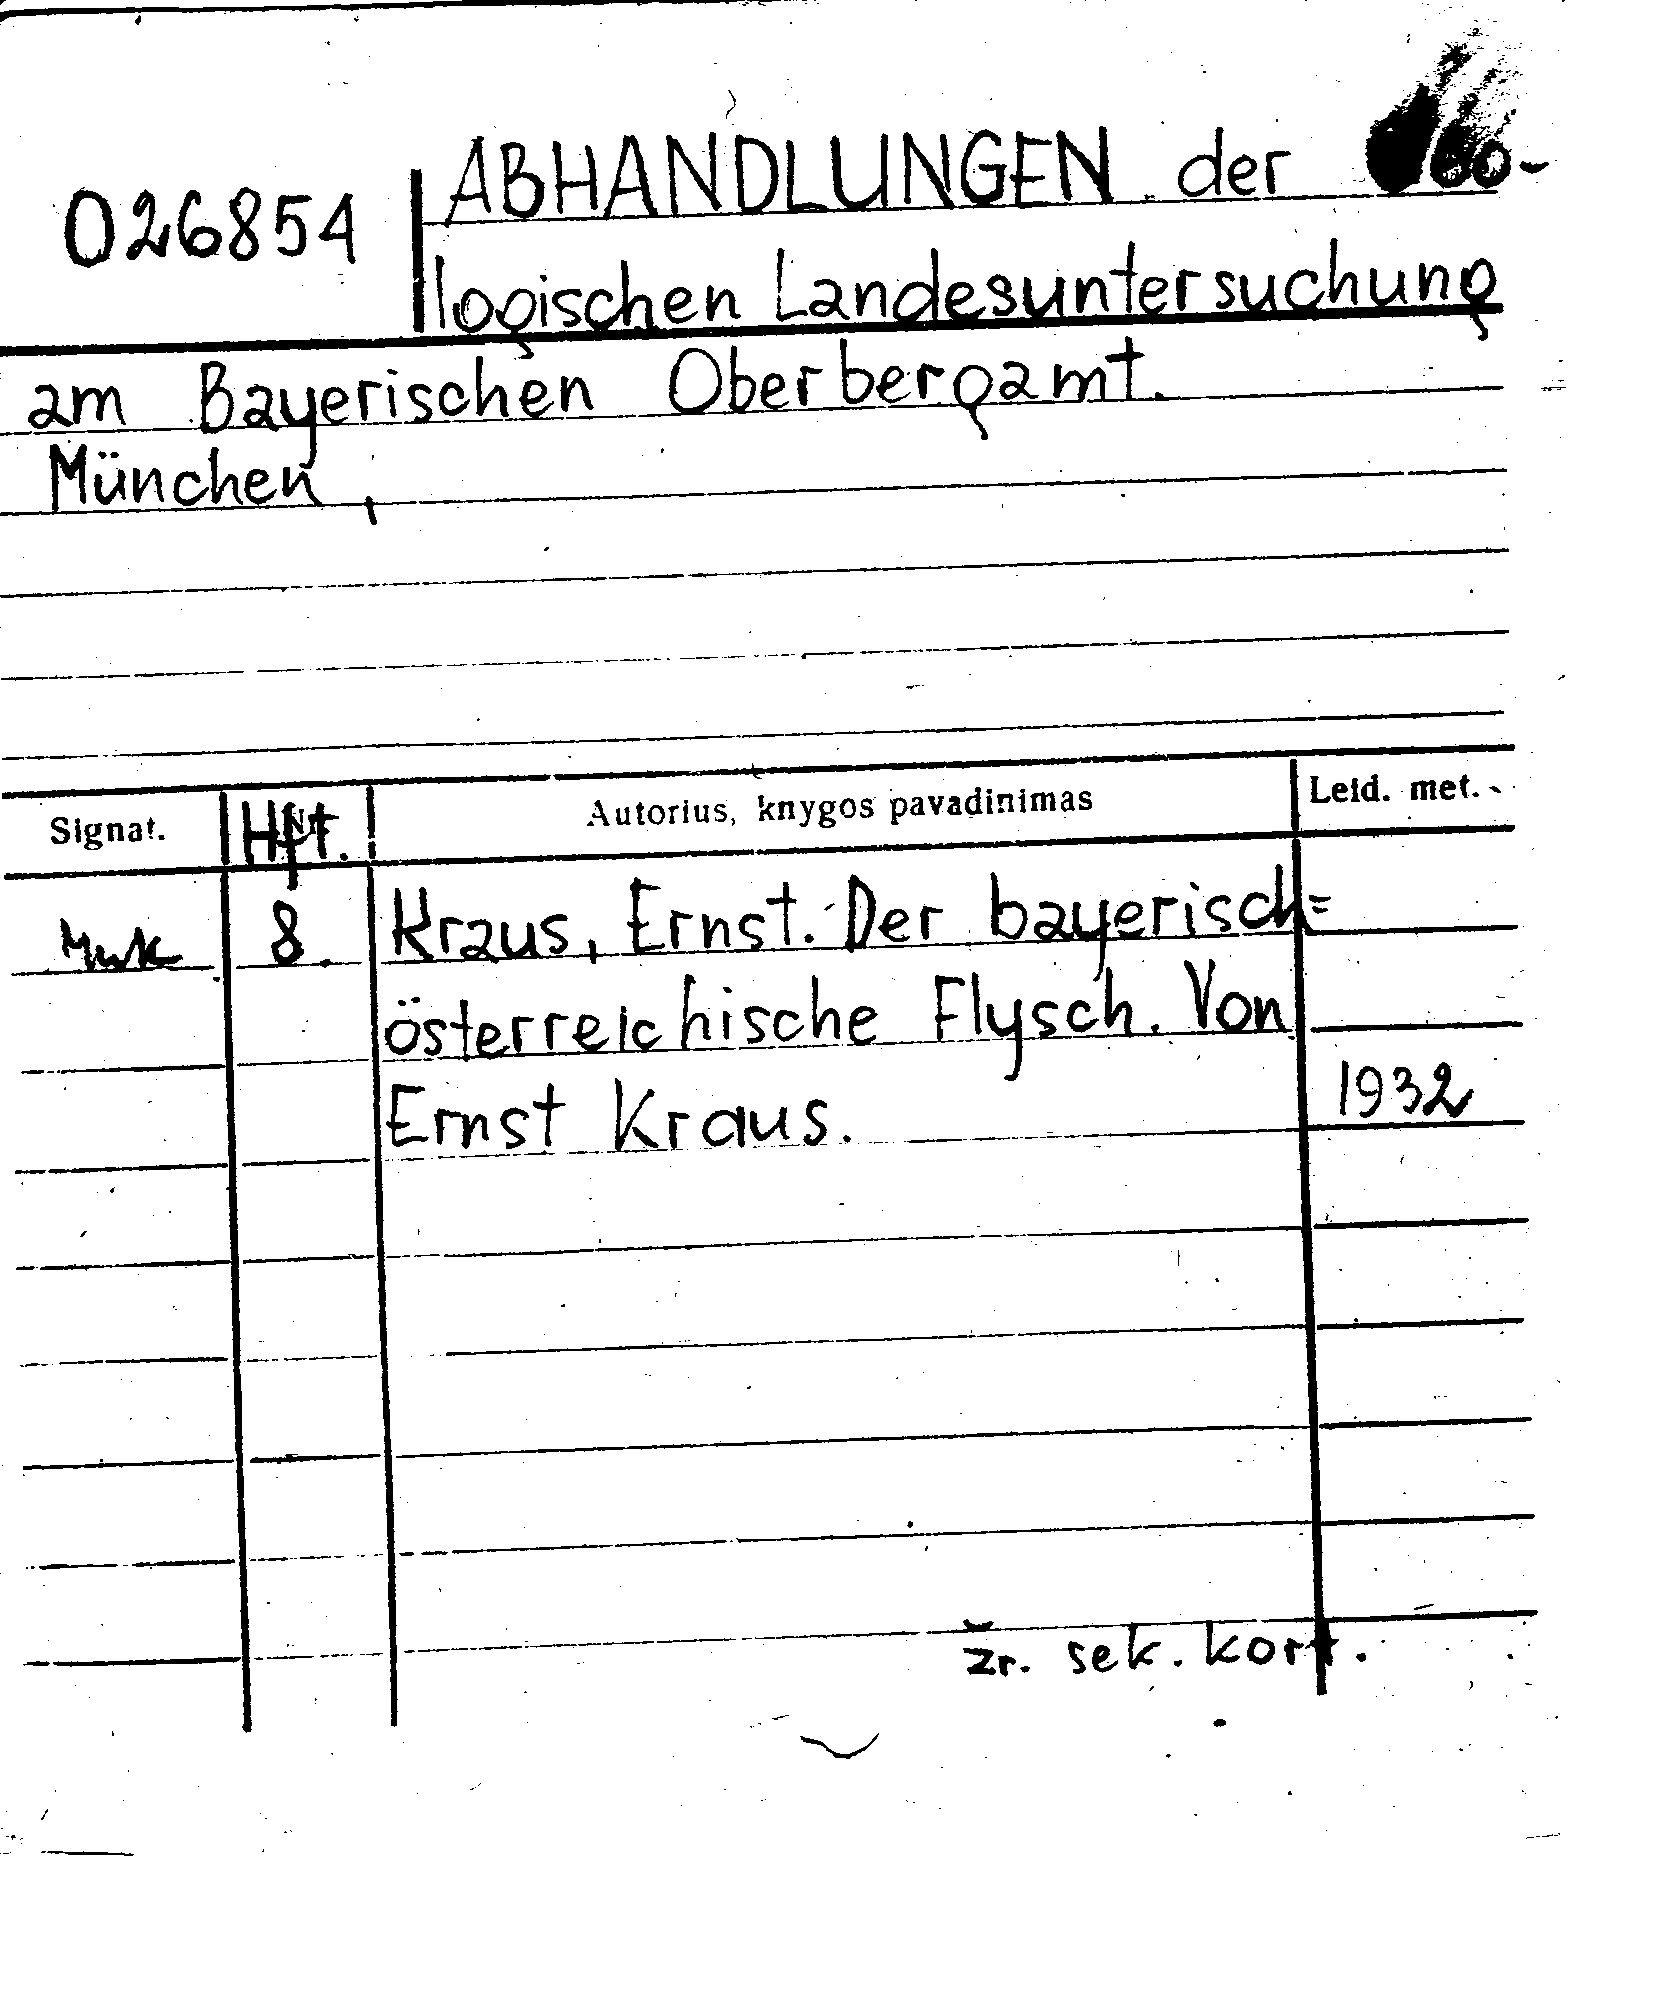 026854 ABHANDLUNGEN der Geo-
logischen Landesuntersuchung
am Bayerischen Oberbergamt.
München,
Signat. Hft. Autorius, knygos pavadinimas Leid. met.
8. Kraus, Ernst. Der bayerisch=
österreichische Flysch. Von
Ernst Kraus. 1932
žr. sek. kort.